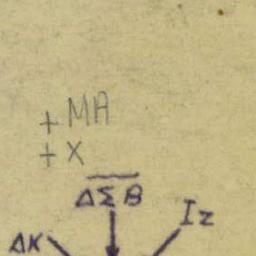 + MA
+ X
ΔΣB
Iz
ΔK